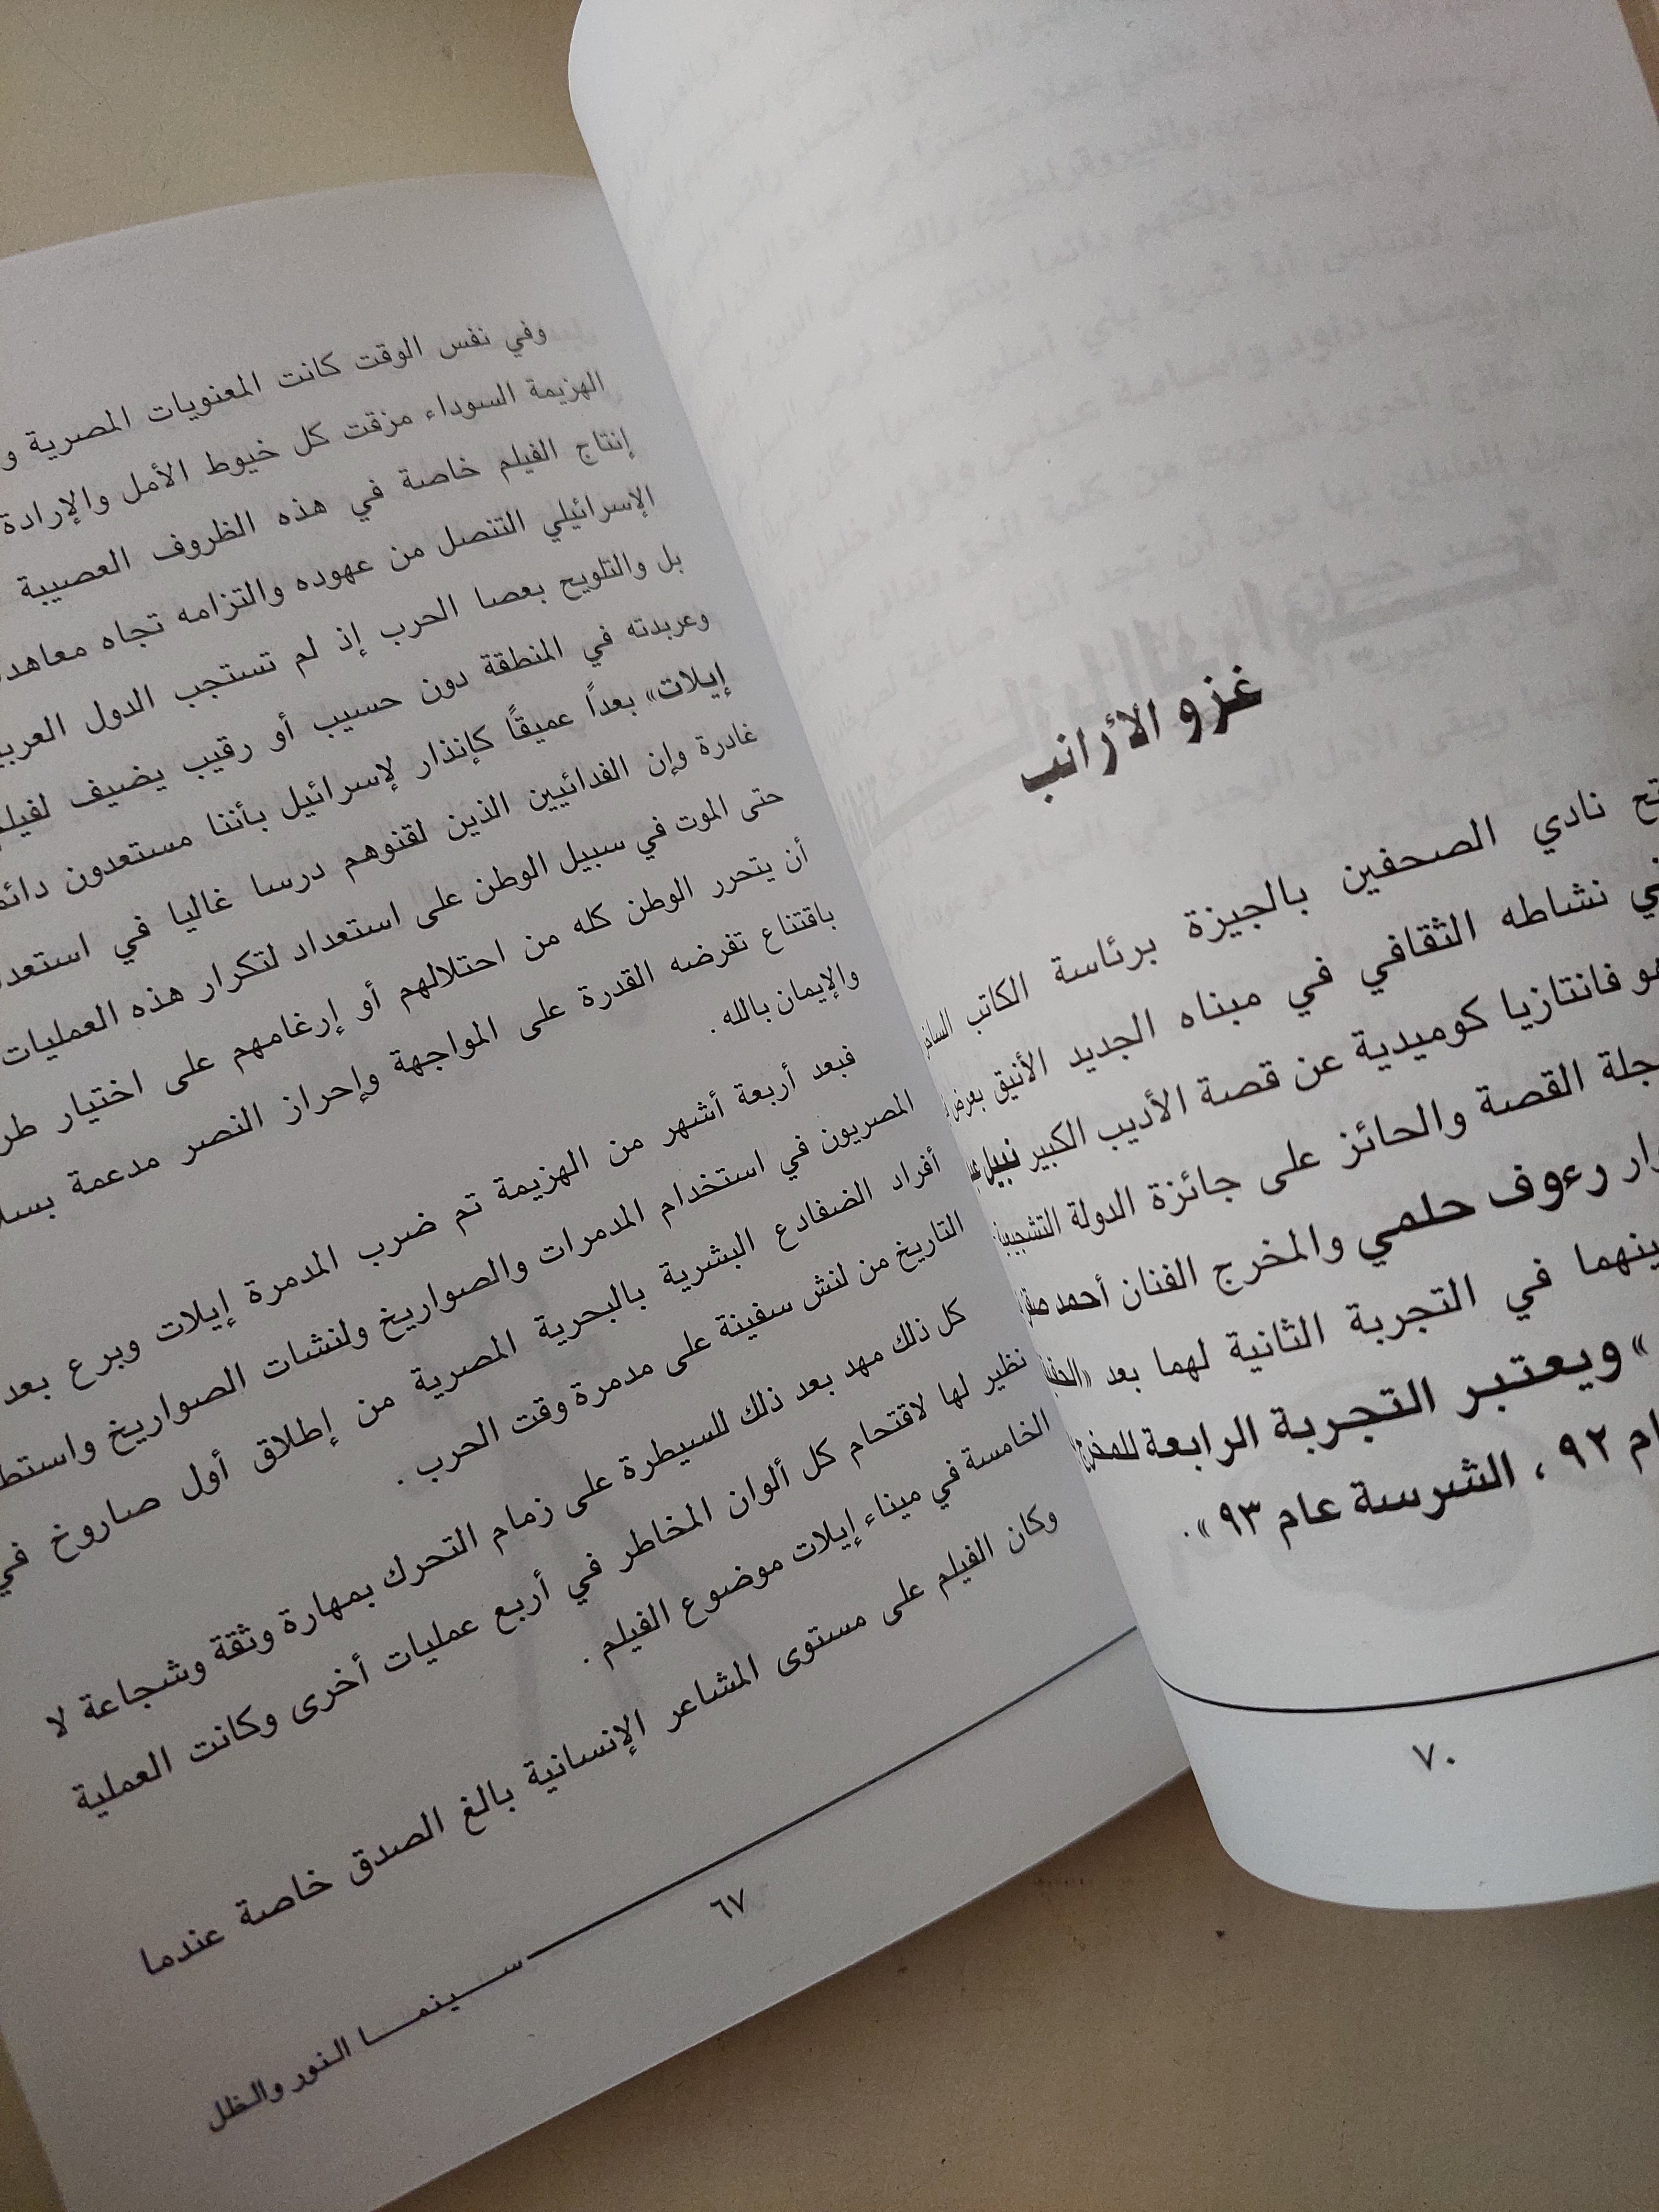 وفي نفس الوقت كانت المعنويات المصرية
الهزيمة السوداء مزقت كل خيوط الأمل والإرادة
إنتاج الفيلم خاصة في هذه الظروف العصيبة
الإسرائيلي التنصل من عهوده والتزامه تجاه
بل والتلويح بعصا الحرب إذ لم تستجب الدول
وعربدته في المنطقة دون حسيب أو رقيب يضيف
إيلات» بعداً عميقًا كإنذار لإسرائيل بأننا مستعدون
غادرة وإن الفدائيين الذين لقنوهم درسا غاليا في
حتى الموت في سبيل الوطن على استعداد لتكرار هذه العمليات
أن يتحرر الوطن كله من احتلالهم أو إرغامهم على اختيار
باقتناع تفرضه القدرة على المواجهة وإحراز النصر مدعمة
والإيمان بالله .
فبعد أربعة أشهر من الهزيمة تم ضرب المدمرة إيلات وبرع بعد
المصريون في استخدام المدمرات والصواريخ ولنشات الصواريخ
أفراد الضفادع البشرية بالبحرية المصرية من إطلاق أول صاروخ في
التاريخ من لنش سفينة على مدمرة وقت الحرب .
كل ذلك مهد بعد ذلك للسيطرة على زمام التحرك بمهارة وثقة وشجاعة لا
نظير لها لاقتحام كل ألوان المخاطر في أربع عمليات أخرى وكانت العملية
الخامسة في ميناء إيلات موضوع الفيلم .
وكان الفيلم على مستوى المشاعر الإنسانية بالغ الصدق خاصة عندما
٦٧
سينما النور والظل
غزو الأرانب
نادي الصحفين بالجيزة برئاسة الكاتب
نشاطه الثقافي في مبناه الجديد الأنيق بعرض
فانتازيا كوميدية عن قصة الأديب الكبير نبيل
القصة والحائز على جائزة الدولة التشجيعية
رءوف حلمي والمخرج الفنان أحمد
في التجربة الثانية لهما بعد
» ويعتبر التجربة الرابعة للمخرج
٩٢ ، الشرسة عام ٩٣» .
٧٠